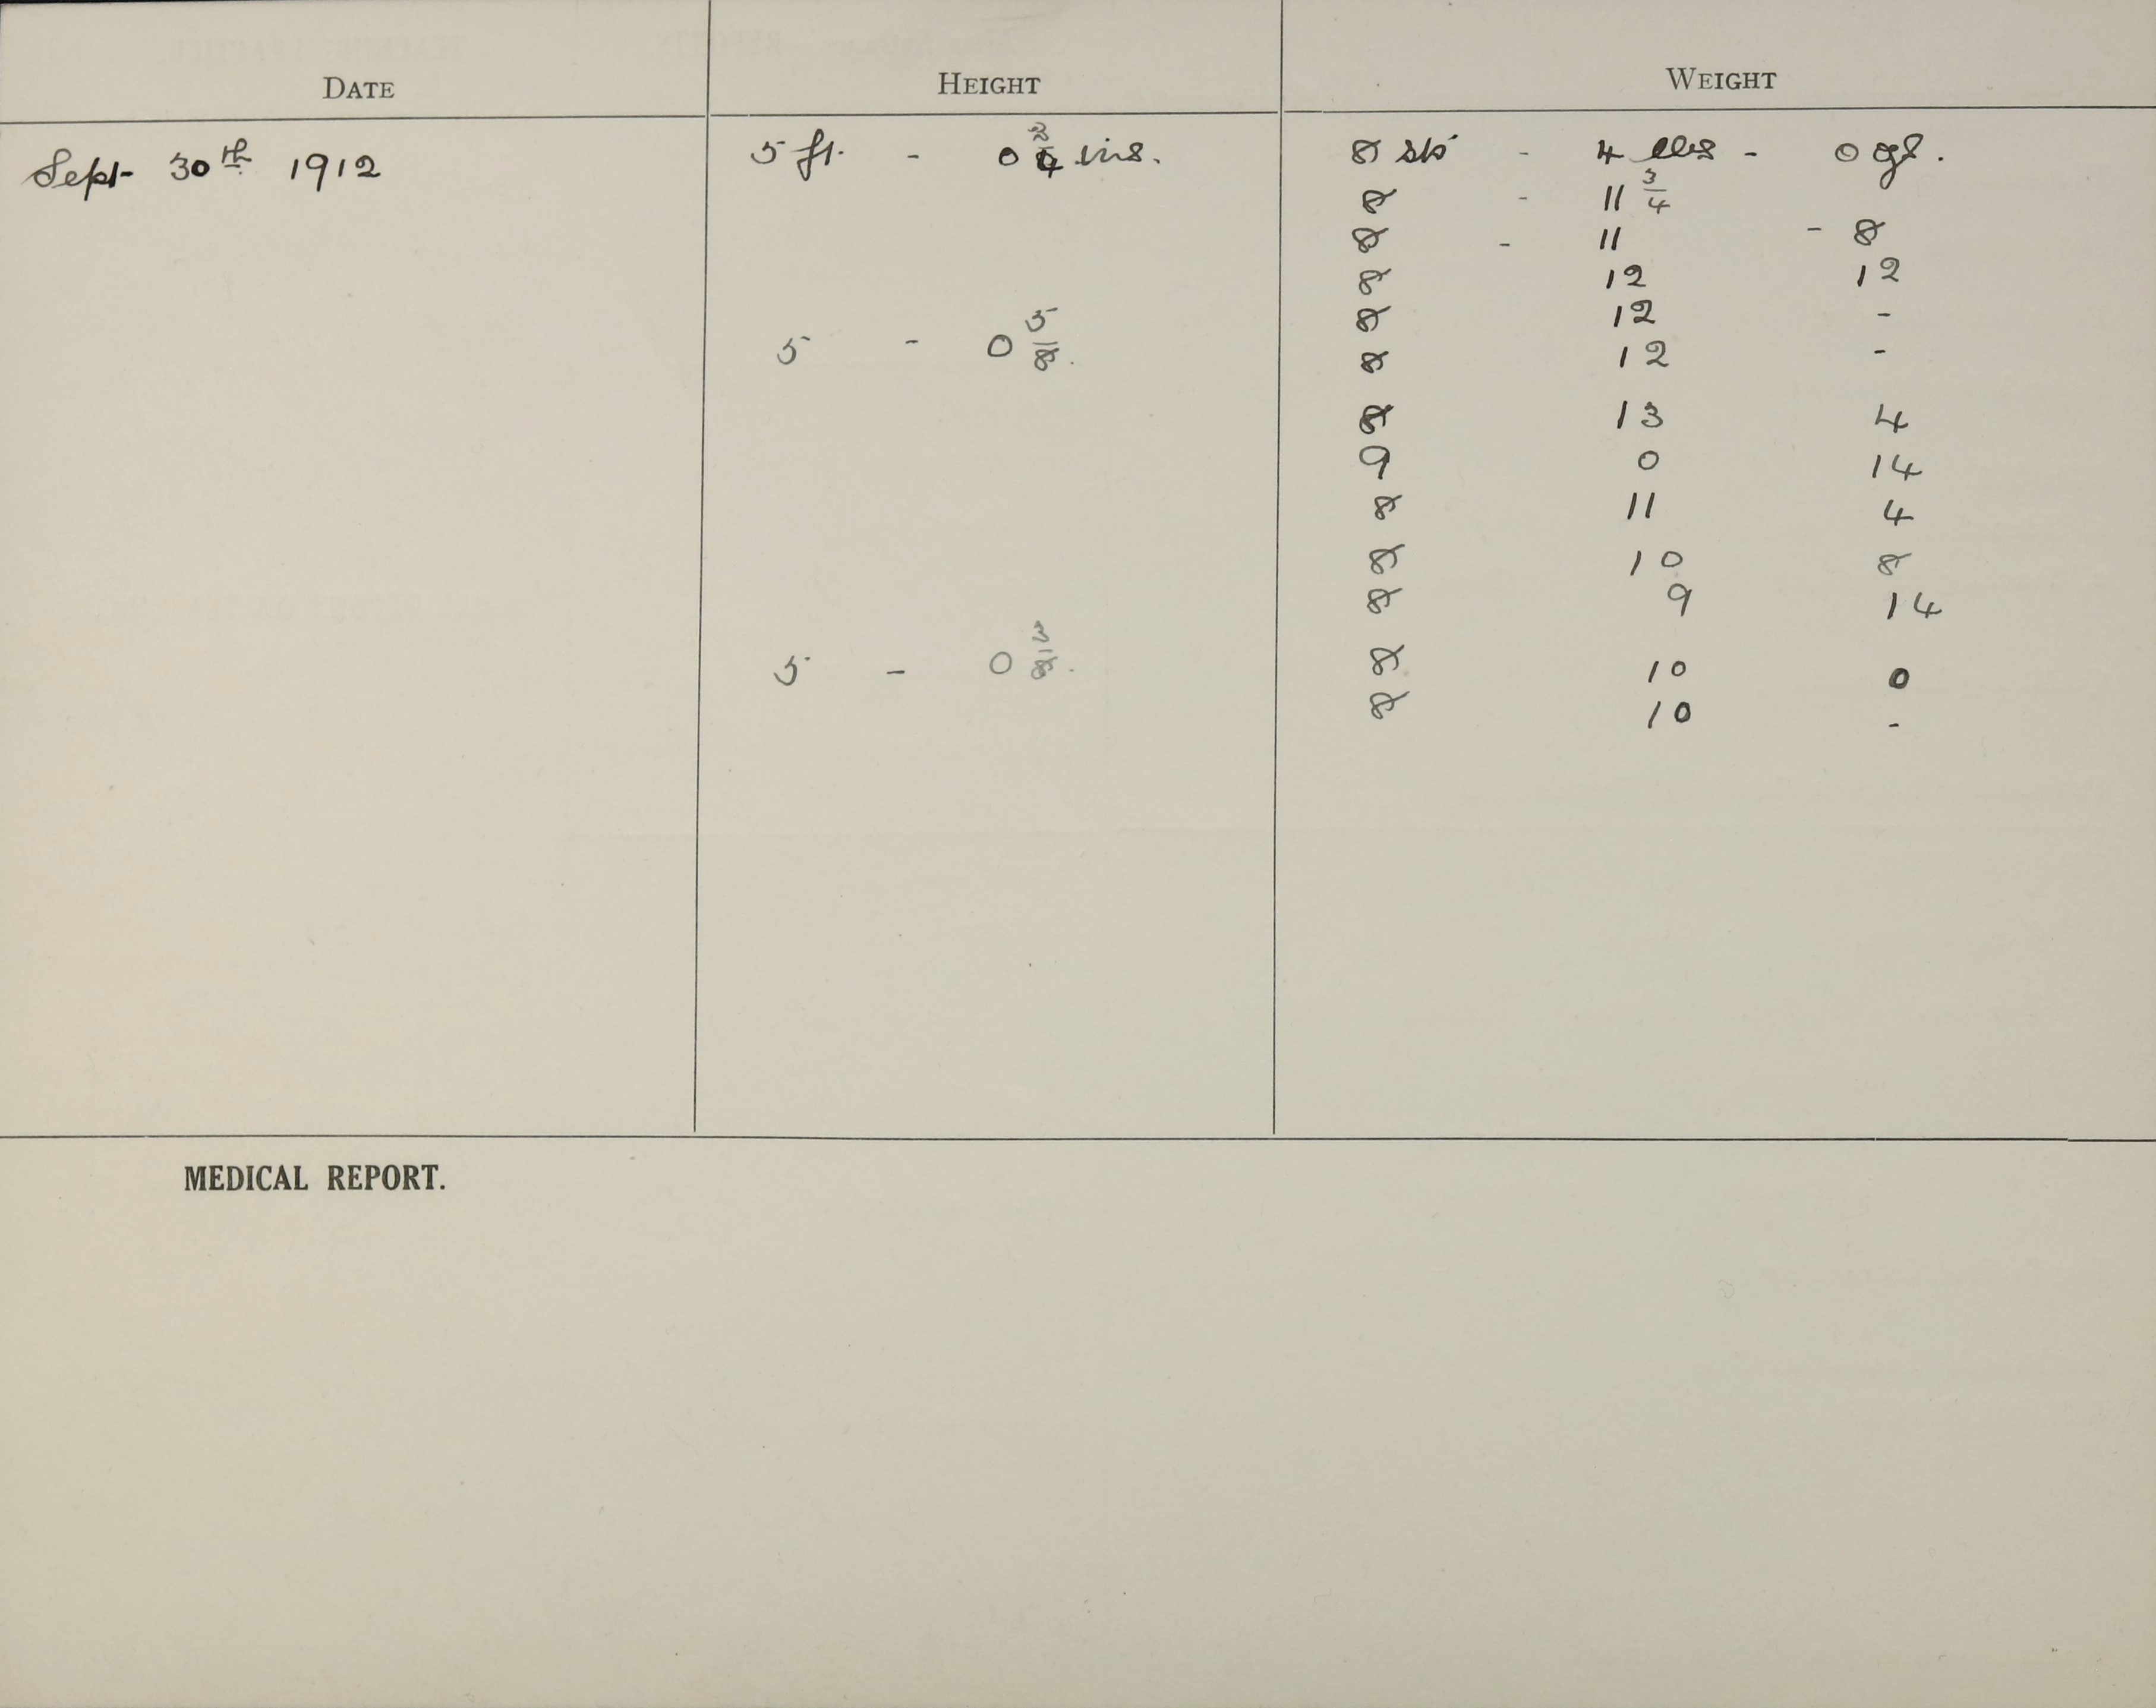 DATE HEIGHT WEIGHT
Sept- 30th 1912 5 ft. - 0 ins. 8 sts - 4 lbs - 0 oz.
8 - 11 3/4
8 - 11 - 8
8 12 12
8 12 -
5 - 0 5/8. 8 12 -
8 13 4
9 0 14
8 11 4
8 10 8
8 9 14
5 - 0 3/8. 8 10 0
8 10 -
MEDICAL REPORT.